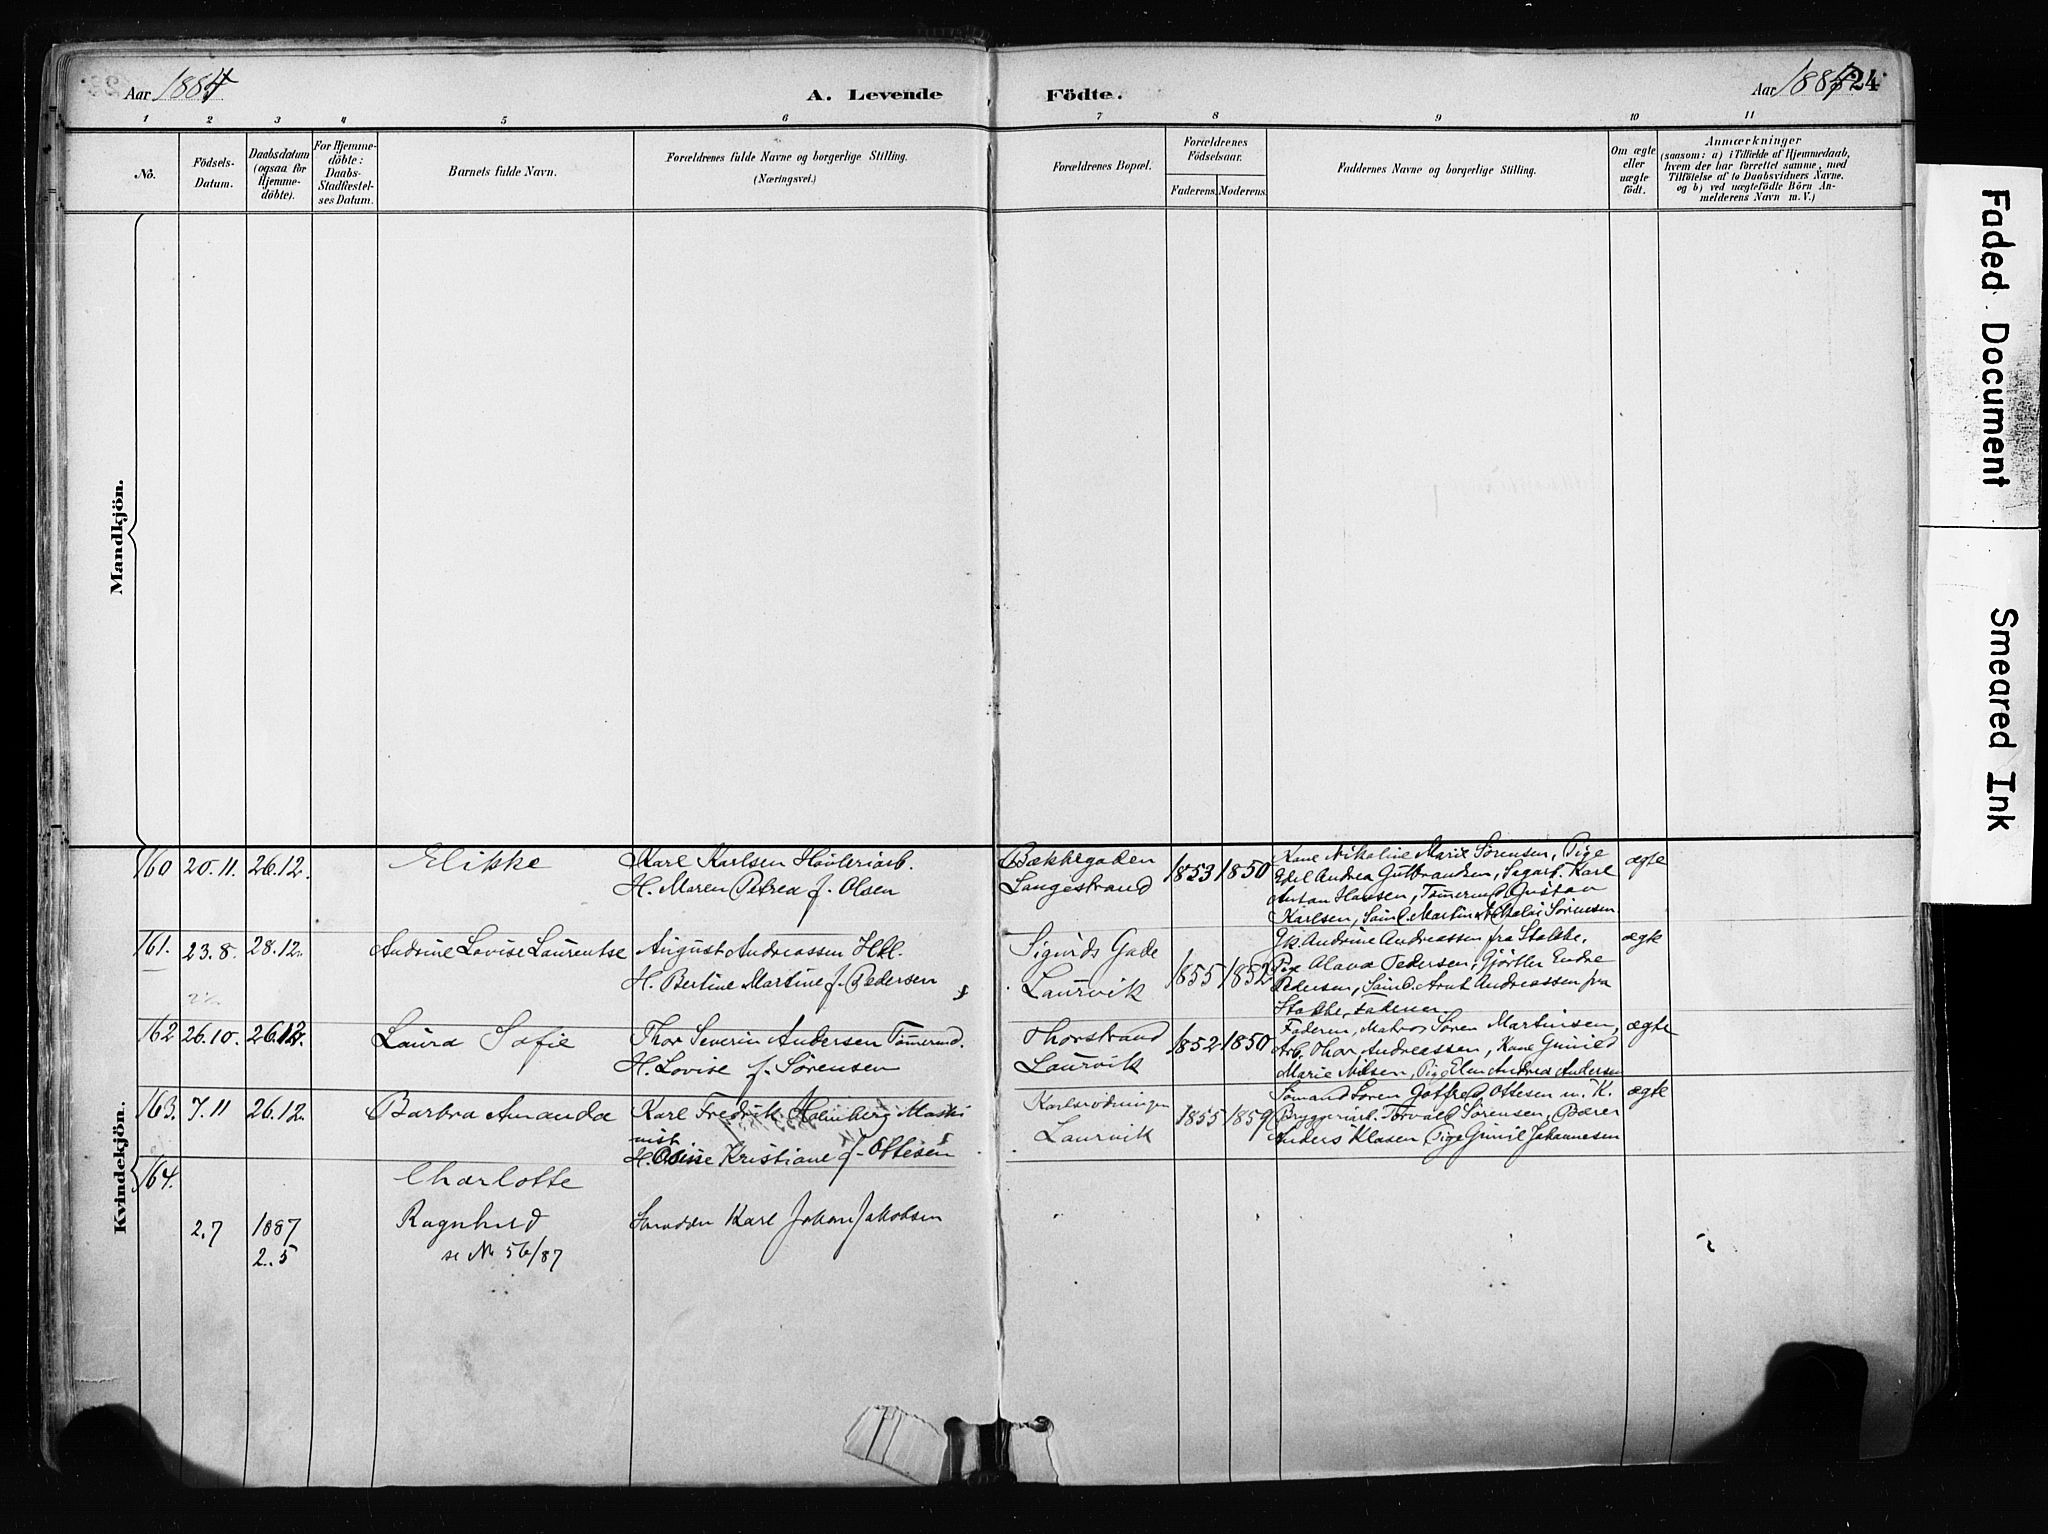 Aar 1884
A. Levende
Födte.
Aar 1884
24
1 2 3 4 5 6 7 8 9 10 11
No.
Födsels-
Datum.
Daabsdatum
(ogsaa for
Hjemme-
döbte).
For Hjemme-
döbte:
Daabs-
Stadfæstel-
ses Datum.
Barnets fulde Navn.
Forældrenes fulde Navne og borgerlige Stilling.
(Næringsvei.)
Forældrenes Bopæl.
Forældrenes
Födselsaar.
Faderens. Moderens.
Faddernes Navne og borgerlige Stilling.
Om ægte
eller
uægte
födt.
Anmærkninger
(saasom: a) i Tilfælde af Hjemmedaab,
hvem der har forrettet samme, med
Tilföielse af to Daabsvidners Navne,
og b) ved uægtefödte Börn An-
melderens Navn m. V.)
Mandkjön.
Kvindekjön.
160 20.11. 26.12. Elikke
Karl Karlsen Hövleriarb.
H. Maren Petrea f. Olsen
Bækkegaden
Langestrand
1853 1850
Kone Nikoline Marie Sørensen, Pige
Edel Andrea Guttransen, Sagarb. Karl
Anton Hansen, Tømermd Gustav
Karlsen, Sømd. Martin Nikolai Sørensen
ægte
161. 23.8. 28.12. Andrine Lovise Laurentse
August Andreassen Hkl.
H. Bertine Martine f. Pedersen
Sigurds Gade
Laurvik
1855 1852
Gk. Andrine Andreassen fra Stokke,
Pige Alava Pedersen, Gjørtler Endre
Pedersen, Sømd. Arnt Andreassen fra
Stokke, Faderen
ægte
162 26.10. 26.12. Laura Sofie
Thor Severin Andersen Tømermd.
H. Lovise f. Sørensen
Thorstrand
Laurvik
1852 1850
Faderen, Matros Søren Martinsen,
Arb. Thor Andreassen, Kone Gunild
Marie Nilsen, Pige Elen Andrea Andersen
ægte
163. 7.11 26.12. Barbra Amanda
Karl Fredrik Holmberg Maski
nist
H. Kristiane f. Ottesen
Karlsrødningen
Laurvik
1855 1859
Sømand Søren Gotfred Ottesen m. K.
Bryggeriarb. Torvald Sørensen, Bærer
Anders Klasen Pige Gunil Johannesen
ægte
164. Charlotte
2.7 1887 Ragnhild
2.5 se No 56/87
Smedden Karl Johan Jakobsen
Faded Document
Smeared Ink